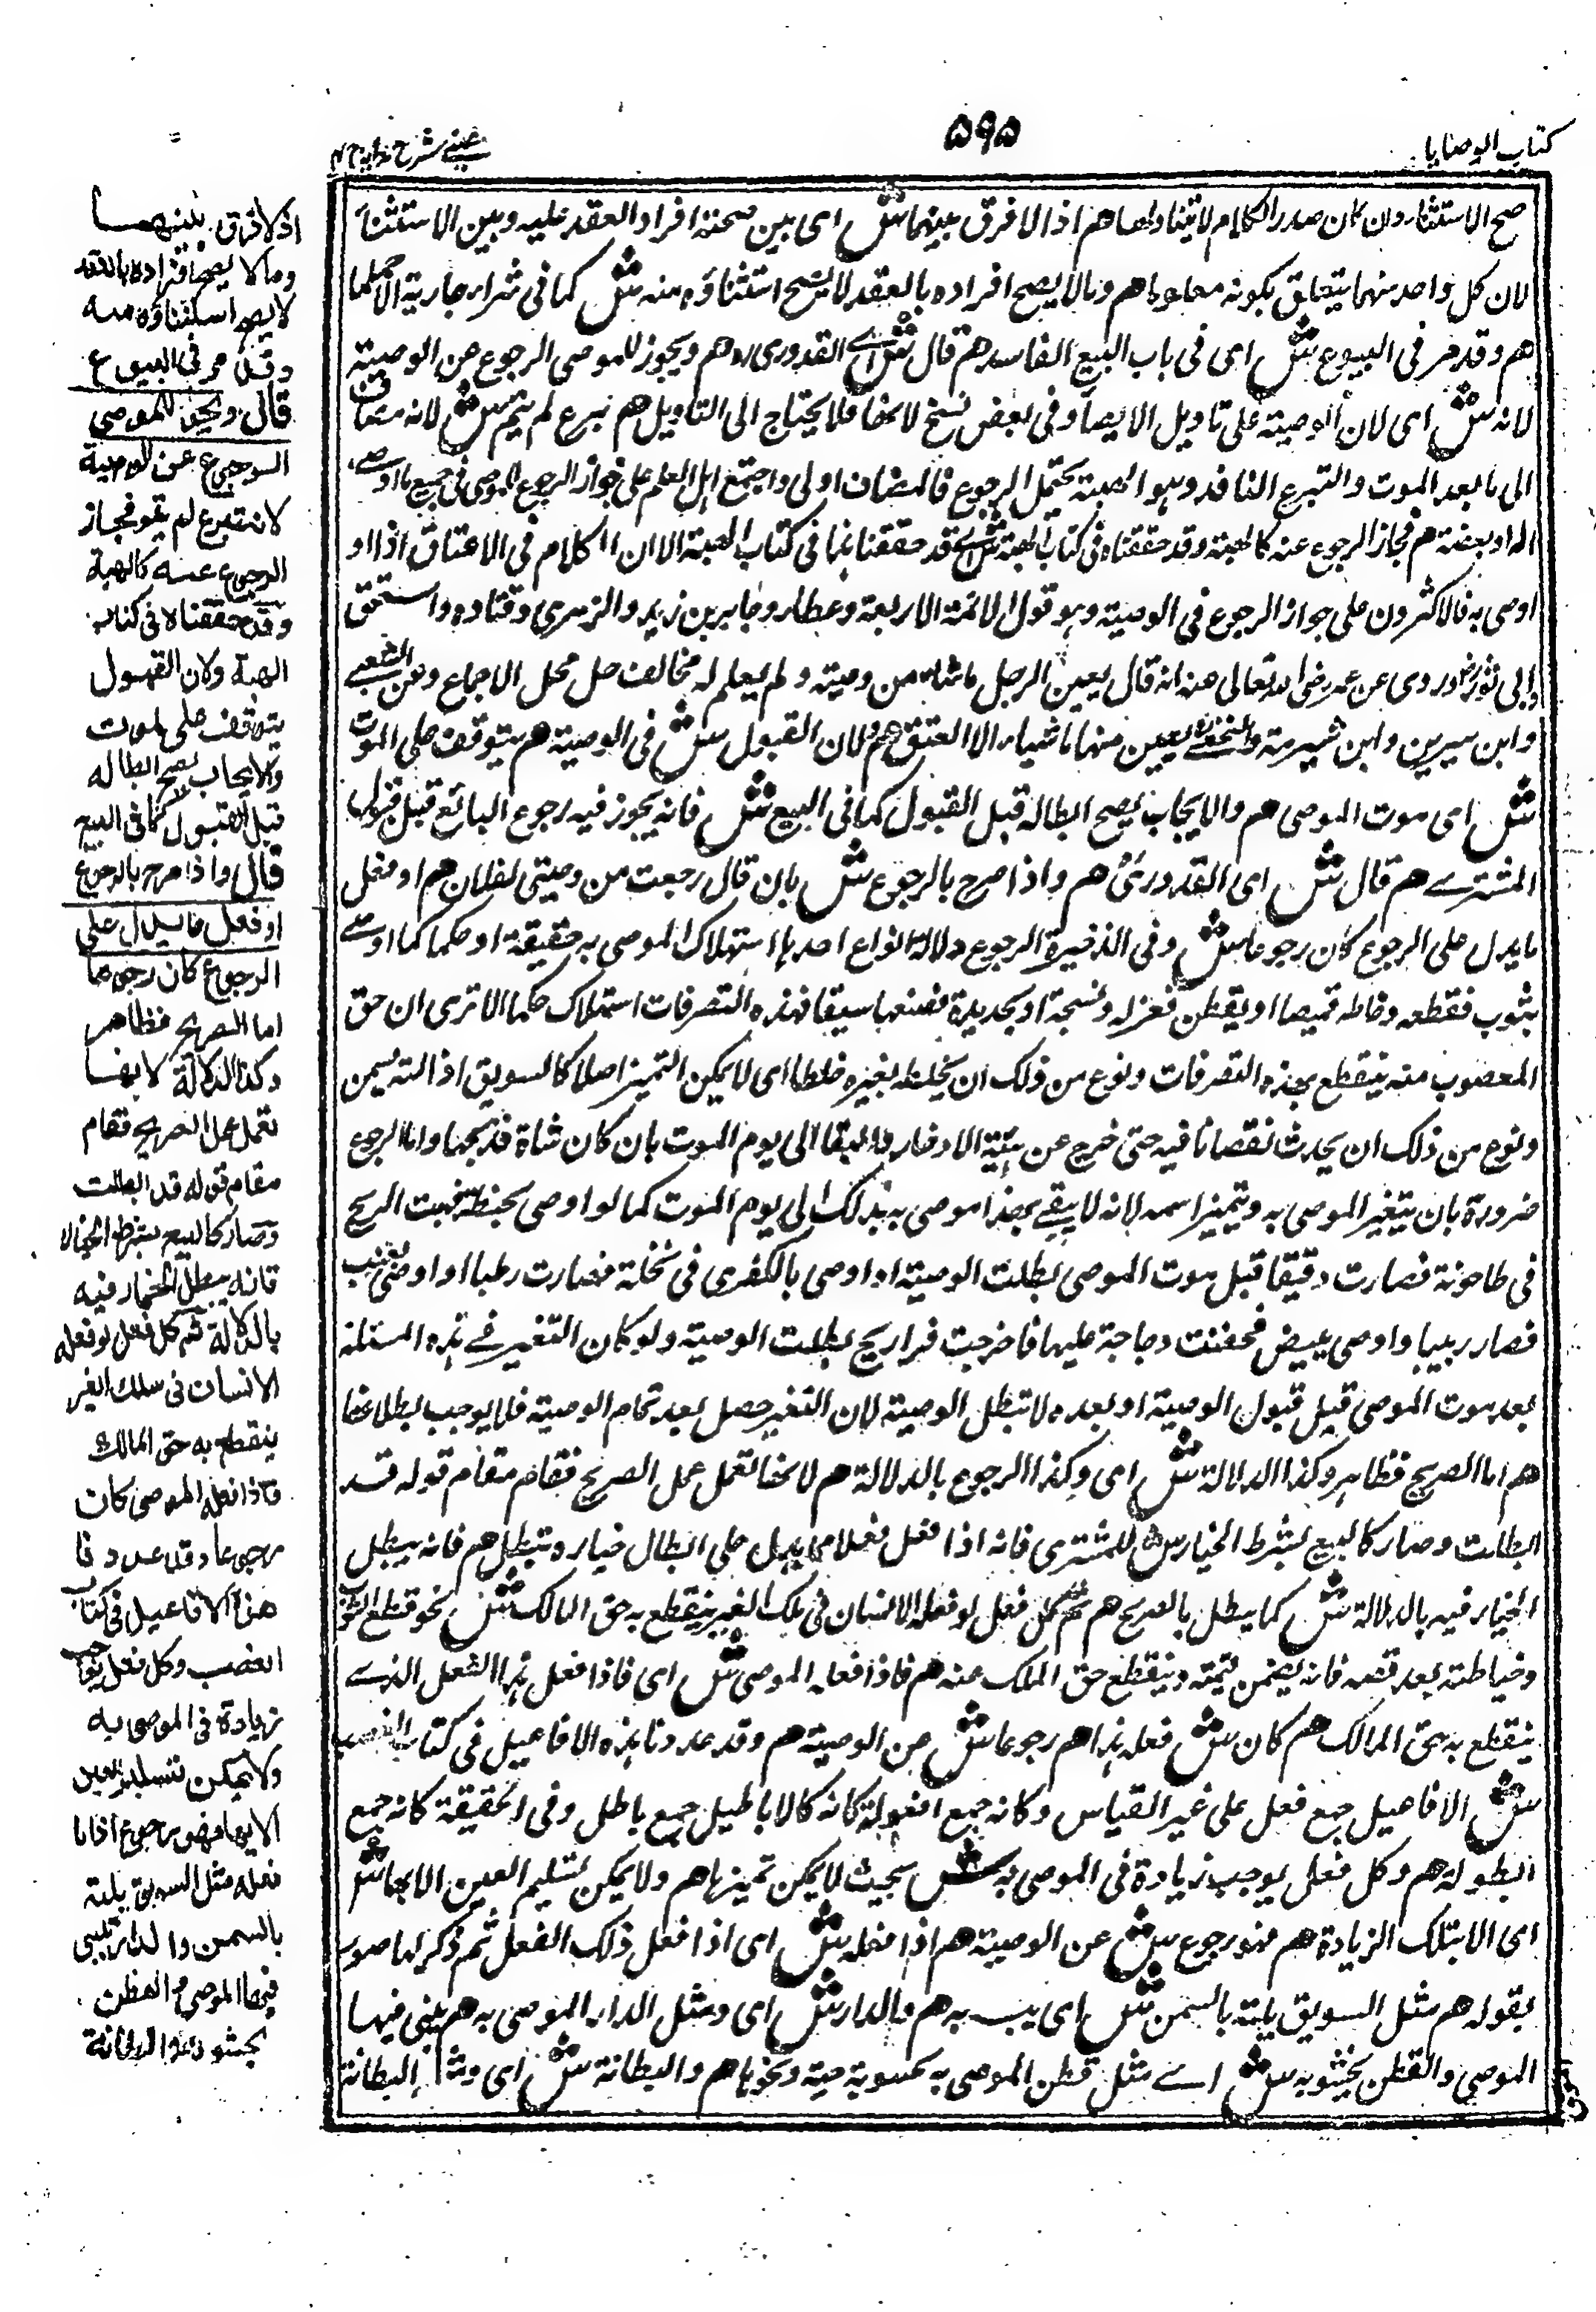 كتاب الوصايا
۵۹۵
عينى شرح هدايه ج ۴
صح الاستثناء وان كان صدر الكلام لا يتناولها هم اذ لا فرق بينهما ش اى بين صحته افراد العقد عليه وبين الاستثناء
لان كل واحد منهما يتعلق بكونه معلوما هم وما لا يصح افراده بالعقد لا يصح استثناؤه منه ش كما فى شراء جارية الا حملها
هم وقد مر فى البيوع ش اى فى باب البيع الفاسد هم قال ش اے القدورى ره هم ويجوز للموصى الرجوع عن الوصية
لانه ش اى لان الوصية على تاويل الايصاء وفى بعض نسخ لانها فلا يحتاج الى التاويل هم تبرع لم يتم ش لانه مضاف
الى ما بعد الموت والتبرع النافذ وهو الهبة يحتمل الرجوع فالمضاف اولى واجتمع اهل العلم على جواز الرجوع للموصى فى جميع ما اوصى
اله او ببعضه هم فجاز الرجوع عنه كالهبة وقد حققناه فى كتاب الهبة ش اے قد حققنا فى كتاب الهبة الا ان الكلام فى الاعتاق اذا او
اوصى به فالاكثرون على جواز الرجوع فى الوصية وهو قول الائمة الاربعة وعطاء وجابر بن زيد والزهرى وقتاده واسحق
وابى ثور وروى عن عمر رضى الله تعالى عنه انه قال يغير الرجل ما شاء من وصيته ولم يعلم له مخالف حل محل الاجماع وعن الشعبے
وابن سيرين وابن شبرمة والنخعے يغير منها ما شاء الا العتق هم ولان القبول ش فى الوصية هم يتوقف على الموت
ش اى موت الموصى هم والايجاب يصح ابطاله قبل القبول كما فى البيع ش فانه يجوز فيه رجوع البائع قبل قبول
المشترے هم قال ش اى القدورى هم واذا صرح بالرجوع ش بان قال رجعت من وصيتى لفلان هم او فعل
ما يدل على الرجوع كان رجوعا ش وفى الذخيرة الرجوع دلالة انواع احدها استهلاك الموصى به حقيقة او حكما كما اوصے
بثوب فقطعه وخاطه قميصا او بقطن فغزله ونسجه او بحديدة فصنعها سيفا فهذه التصرفات استهلاك حكما الا ترى ان حق
المغصوب منه ينقطع بهذه التصرفات ونوع من ذلك ان يخلطه بغيره خلطا اى لا يمكن التميز اصلا كالسويق اذا لته بسمن
ونوع من ذلك ان يحدث نقصانا فيه حتى خرج عن هيئة الادخار والبقا الى يوم الموت بان كان شاة فذبحها واما الرجوع
ضرورة بان يتغير الموصى به ويتميز اسمه لانه لا يبقے بهذا موصى به بذلك الى يوم الموت كما لو اوصى بحنطة فهبت الريح
فى طاحونة فصارت دقيقا قبل موت الموصى بطلت الوصية او اوصى بالكفرى فى نخلة فصارت رطبا او اوصى بعنب
فصار زبيبا واوصى ببيض فحضنت دجاجة عليها فاخرجت فراريج بطلت الوصية ولو كان التغير فے هذه المسئلة
بعد موت الموصى قبل قبول الوصية او بعده لا تبطل الوصية لان التغير حصل بعد تمام الوصية فلا يوجب بطلانها
هم اما الصريح فظاهر وكذا الدلالة ش اى وكذا الرجوع بالدلالة هم لانها تعمل عمل الصريح فقام مقام قوله قد
ابطلت وصار كالبيع بشرط الخيار ش للمشترى فانه اذا فعل فعلا مما يدل على ابطال خياره وتبطل هم فانه يبطل
الخيار فيه بالدلالة ش كما يبطل بالصريح هم ثم كل فعل لو فعله الانسان فى ملك الغير ينقطع به حق المالك ش نحو قطع الثوب
وخياطته بعد قصه فانه يضمن قيمته وينقطع حق الملك عنه هم فاذا فعله الموصى ش اى فاذا فعل هذا الفعل الذے
ينقطع به حق المالك هم كان ش فعله هذا هم رجوعا ش عن الوصية هم وقد عددنا هذه الافاعيل فى كتاب الغصب
ش الافاعيل جمع فعل على غير القياس وكانه جمع افعولة كانه كالاباطيل جمع باطل وفى الحقيقة كانه جمع
ابطولة هم وكل فعل يوجب زيادة فى الموصى به ش بحيث لا يمكن تميزها هم ولا يمكن تسليم العين الا بها ش
اى الا بتلك الزيادة هم فهو رجوع ش عن الوصية هم اذا فعله ش اى اذا فعل ذلك الفعل ثم ذكر لها صور
بقوله هم مثل السويق يلته بالسمن ش اى يبس به هم والدار ش اى ومثل الدار الموصى به هم يبنى فيها
الموصى والقطن يحشو به ش اے مثل قطن الموصى به يحشو به جبة ونحوها هم والبطانة ش اى ومثل البطانة
اذ لا فرق بينهما
وما لا يصح افراده بالعقد
لا يصح استثناؤه منه
وقد مر فى البيوع
قال ويجوز للموصى
الرجوع عن الوصية
لانه تبرع لم يتم فجاز
الرجوع عنه كالهبة
وقد حققناه فى كتاب
الهبة ولان القبول
يتوقف على الموت
والايجاب يصح ابطاله
قبل القبول كما فى البيع
قال واذا صرح بالرجوع
او فعل ما يدل على
الرجوع كان رجوعا
اما الصريح فظاهر
وكذا الدلالة لانها
تعمل عمل الصريح فقام
مقام قوله قد ابطلت
وصار كالبيع بشرط الخيار
فانه يبطل الخيار فيه
بالدلالة ثم كل فعل لو فعله
الانسان فى ملك الغير
ينقطع به حق المالك
فاذا فعله الموصى كان
رجوعا وقد عددنا
هذه الافاعيل فى كتاب
الغصب وكل فعل يوجب
زيادة فى الموصى به
ولا يمكن تسليم العين
الا بها فهو رجوع اذا
فعله مثل السويق يلته
بالسمن والدار يبنى
فيها الموصى والقطن
يحشو به والبطانة